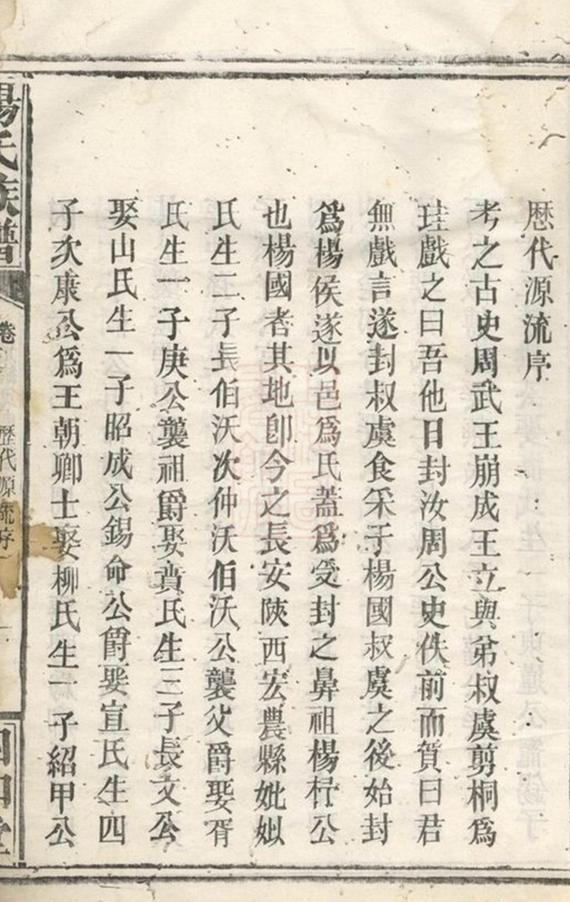 歷代源流序
考之古史周武王崩成王立與弟叔虞剪桐爲
珪戲之曰吾他日封汝周公史佚前而賀曰君
無戲言遂封叔虞食采于楊國叔虞之後始封
爲楊侯遂以邑爲氏蓋爲受封之鼻祖楊杼公
也楊國者其地卽今之長安陝西宏農縣妣姒
氏生二子長伯沃次仲沃伯沃公襲父爵娶胥
氏生一子庚公襲祖爵娶賁氏生三子長文公
娶山氏生一子昭成公錫命公爵娶宣氏生四
子次康公爲王朝卿士娶柳氏生一子紹甲公
楊氏族譜
卷
歷代源流序
一
四知堂